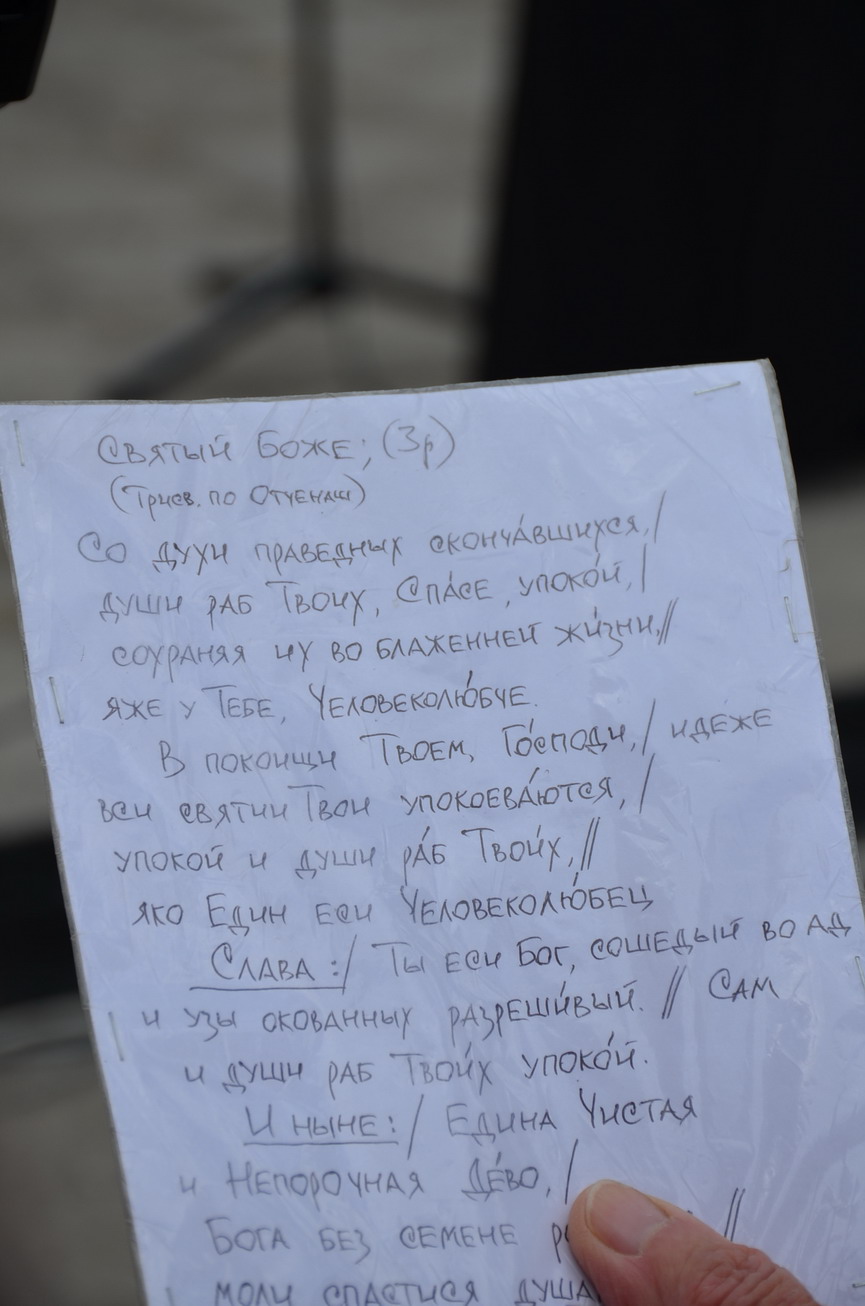 Святый Боже; (3р)
(Трисв. по Отченаш)
Со духи праведных сконча́вшихся,/
души раб Твоих, Спа́се, упоко́й,/
сохраняя их во блаженней жи́зни,//
яже у Тебе, Человеколю́бче.
В покоищи Твоем, Го́споди,/ иде́же
вси святии Твои упокоева́ются,/
упокой и души ра́б Твои́х,//
яко Един еси Человеколю́бец
Слава:/ Ты еси Бог, сошедый во ад
и узы окованных разреши́вый. // Сам
и души раб Твои́х упоко́й.
И ныне:/ Едина Чистая
и Непорочная Де́во,/
Бога без семене //
моли спастися душа